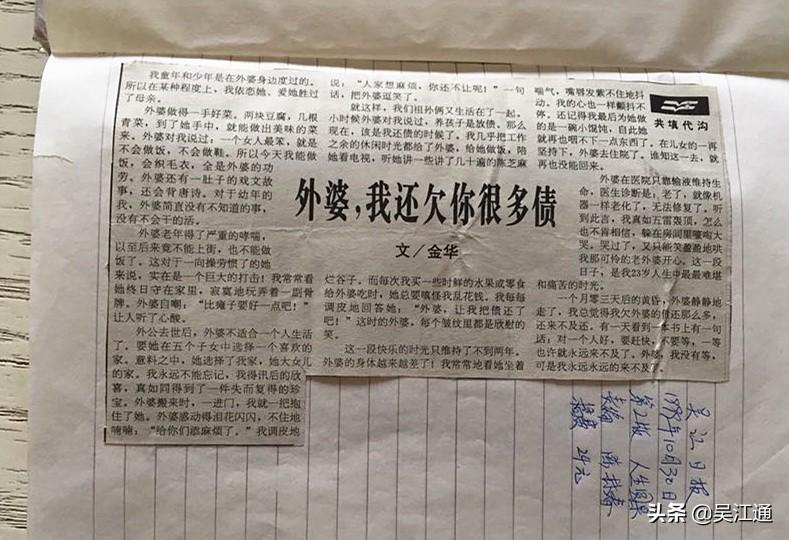 外婆,我还欠你很多债
文/金华
共填代沟
我童年和少年是在外婆身边度过的。
所以在某种程度上,我依恋她、爱她胜过
了母亲。
外婆做得一手好菜。两块豆腐,几根
青菜,到了她手中,就能做出美味的菜
来。外婆对我说过,一个女人最笨,就是
不会做饭,不会做鞋。所以今天我能做
饭,会织毛衣,全是外婆的功
劳。外婆还有一肚子的戏文故
事,还会背唐诗。对于幼年的
我,外婆简直没有不知道的事,
没有不会干的活。
外婆老年得了严重的哮喘,
以至后来竟不能上街,也不能做
饭了。这对于一向操劳惯了的她
来说,实在是一个巨大的打击!我常常看
她终日守在家里,寂寞地玩弄着一副骨
牌。外婆自嘲:“比瘫子要好一点吧!”
让人听了心酸。
外公去世后,外婆不适合一个人生活
了。要她在五个子女中选择一个喜欢的
家。意料之中,她选择了我家,她大女儿
的家。我永远不能忘记,我得讯后的欣
喜,真如同得到了一件失而复得的珍
宝。外婆搬来时,一进门,我就一把抱
住了她。外婆感动得泪花闪闪,不住地
喃喃:“给你们添麻烦了。”我调皮地
说:“人家想麻烦,你还不让呢!”一句
话,把外婆逗笑了。
就这样,我们祖孙俩又生活在了一起。
小时候外婆对我说过,养孩子是放债。那么
现在,该是我还债的时候了。我几乎把工作
之余的休闲时光都给了外婆,给她做饭,陪
她看电视,听她讲一些讲了几十遍的陈芝麻
烂谷子。而每次我买一些时鲜的水果或零食
给外婆吃时,她总要嗔怪我乱花钱。我每每
调皮地回答她:“外婆,让我把债还了
吧!”这时的外婆,每个皱纹里都是欣慰的
笑。
这一段快乐的时光只维持了不到两年。
外婆的身体越来越差了!我常常地看她坐着
喘气,嘴唇发紫不住地抖
动。我的心也一样颤抖不
停。还记得我最后为她做
的是一碗小馄饨,自此她
就再也咽不下一点东西了。在儿女的一再
坚持下,外婆去住院了。谁知这一去,就
再也没能回来。
外婆在医院只靠输液维持生
命。医生诊断是:老了,就像机
器一样老化了,无法修复了。听
到此言,我真如五雷轰顶,怎么
也不肯相信,躲在房间里嚎啕大
哭。哭过了,又只能笑盈盈地哄
我那可怜的老外婆开心。这一段
日子,是我23岁人生中最最难堪
和痛苦的时光。
一个月零三天后的黄昏,外婆静静地
走了,我总觉得我欠外婆的债还那么多,
还来不及还。有一天看到一本书上有一句
话:对一个人好,要赶快,不要等,一等
也许就永远来不及了。外婆,我没有等,
可是我永远永远的来不及了。
吴江日报
1998年10月30日
第二版
稿费 24元
头条 @吴江通